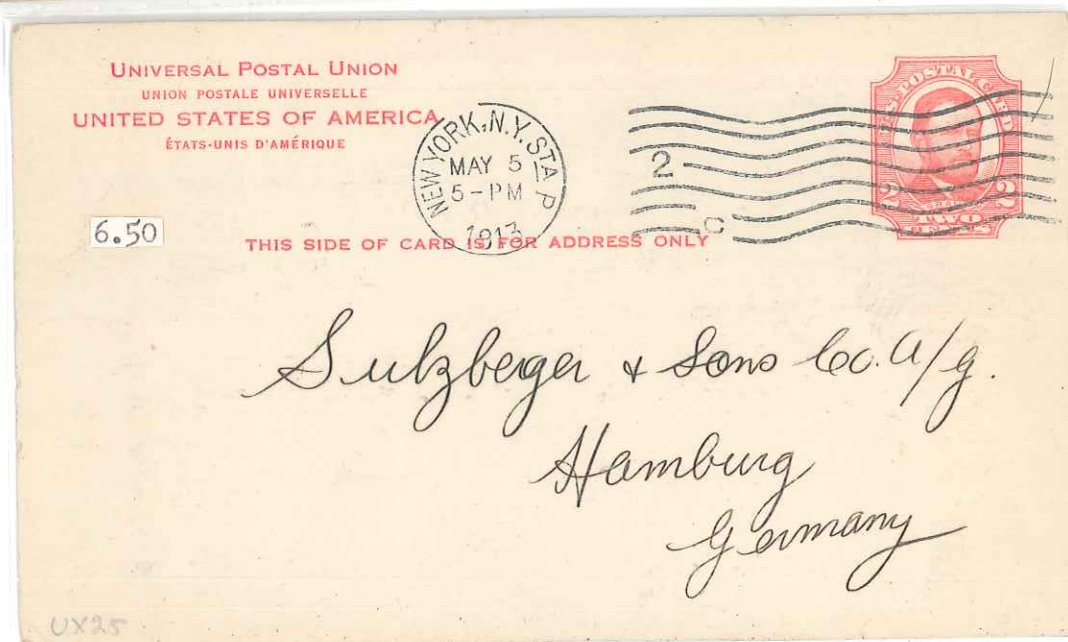 UNIVERSAL POSTAL UNION
UNION POSTALE UNIVERSELLE
UNITED STATES OF AMERICA
ÉTATS-UNIS D'AMÉRIQUE
NEW YORK, N.Y. STA. P
MAY 5
5-PM
1913
2
C
U.S. POSTAL CARD
2 GRANT 2
TWO
CENTS
6.50
THIS SIDE OF CARD IS FOR ADDRESS ONLY
Sulzberger & Sons Co. A/g.
Hamburg
Germany
UX25